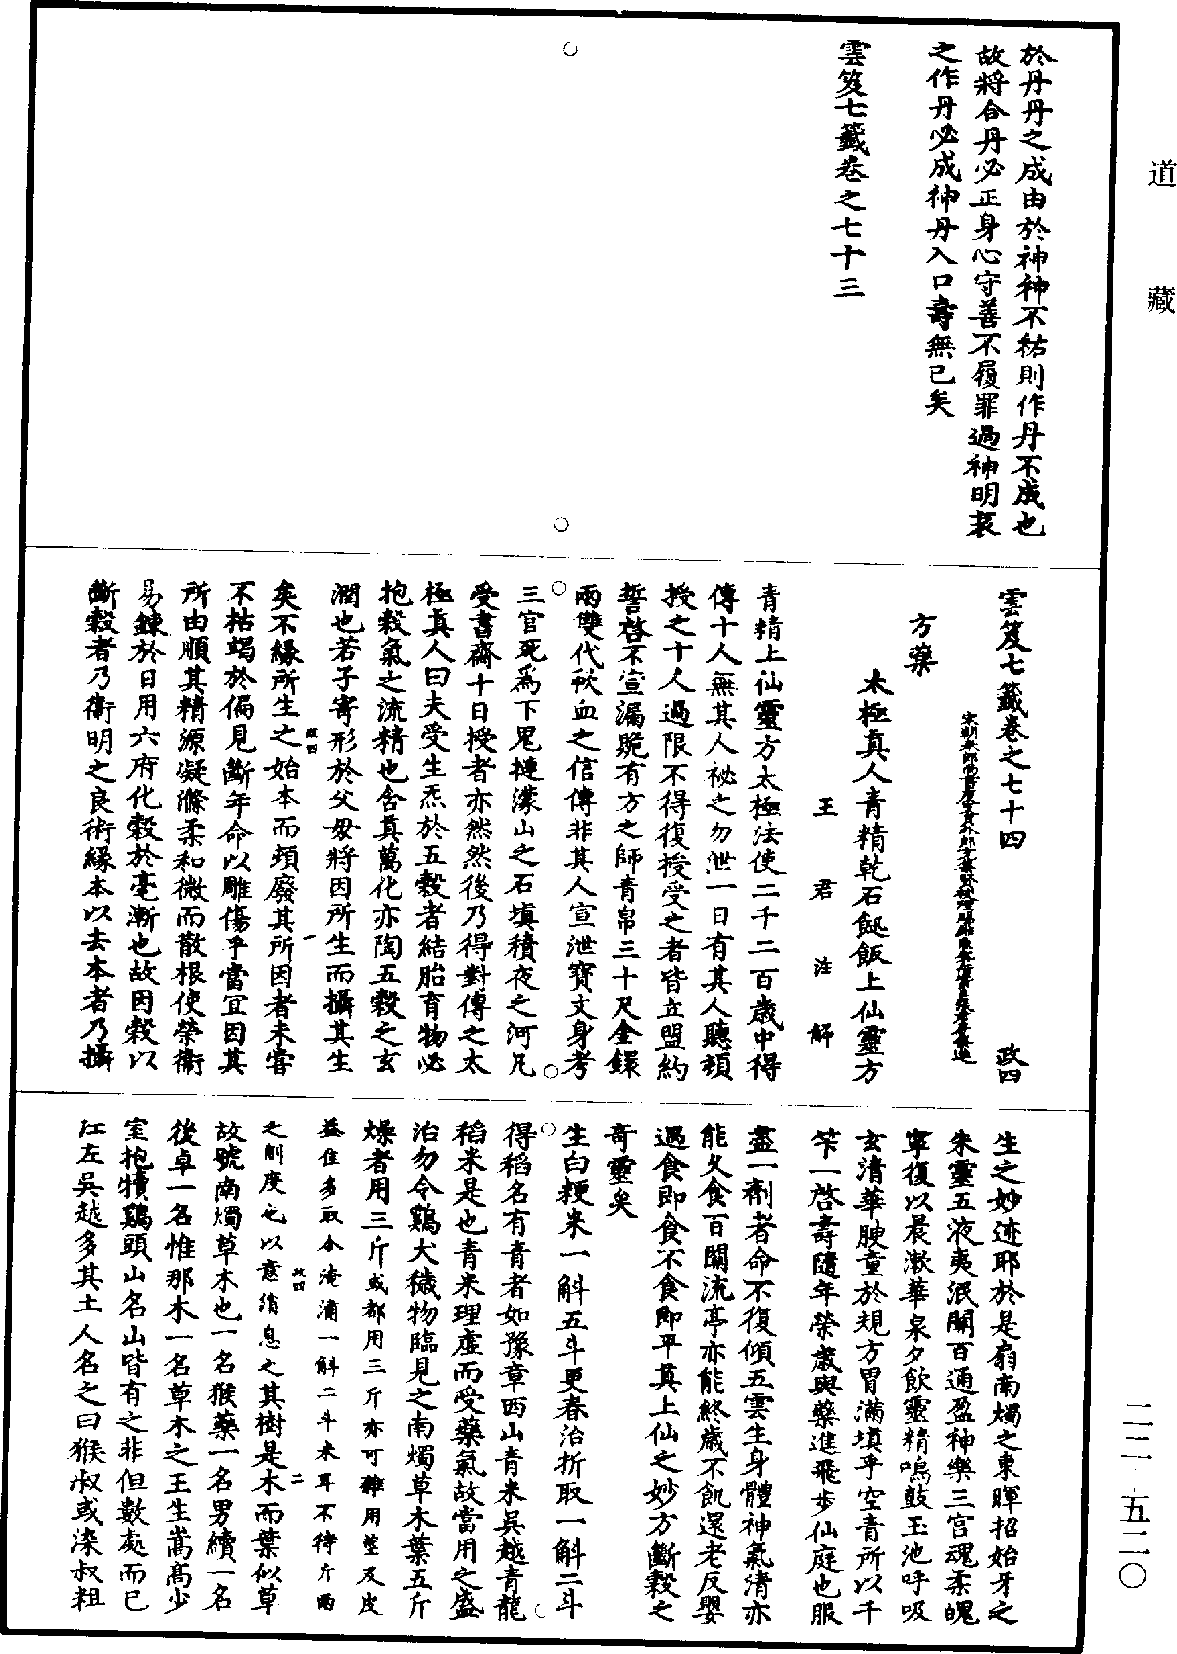 道藏
於丹丹之成由於神神不祐則作丹不成也
故將合丹必正身心守善不履罪過神明哀
之作丹必成神丹入口壽無已矣
雲笈七籤卷之七十三
雲笈七籤卷之七十四 政四
方藥
太極真人青精乾石䭀飯上仙靈方
王君注解
青精上仙靈方太極法使二千二百歲中得
傳十人無其人祕之勿泄一日有其人聽頓
授之十人過限不得復授受之者皆立盟約
誓啓不宣漏跪有方之師青帛三十尺金鐶
兩雙代歃血之信傳非其人宣泄寶文身考
三官死爲下鬼撻濛山之石填積夜之河凡
受書齋十日授者亦然然後乃得對傳之太
極真人曰夫受生炁於五穀者結胎育物必
抱穀氣之流精也含真萬化亦陶五穀之玄
潤也若子寄形於父母將因所生而攝其生
政四 一
矣不緣所生之始本而頓廢其所因者未嘗
不枯竭於偏見斷年命以雕傷乎當宜因其
所由順其精源凝滌柔和微而散根使榮衛
易鍊於日用六府化穀於毫漸也故因穀以
斷穀者乃衛明之良術緣本以去本者乃攝
生之妙迹耶於是扇南燭之東暉招始牙之
朱靈五液夷泯關百通盈神樂三宮魂柔魄
寧復以晨漱華泉夕飲靈精鳴鼓玉池呼吸
玄清華腴童於規方胃滿填乎空青所以千
筭一啓壽隨年榮歲與藥進飛步仙庭也服
盡一劑者命不復傾五雲生身體神氣清亦
能久食百關流亭亦能終歲不飢還老反嬰
遇食即食不食即平真上仙之妙方斷穀之
奇靈矣
生白粳米一斛五斗更舂治折取一斛二斗
得稻名有青者如豫章西山青米吳越青龍
稻米是也青米理虛而受藥氣故當用之盛
治勿令鷄犬穢物臨見之南燭草木葉五斤
燥者用三斤或都用三斤亦可雜用莖及皮
益佳多取令淹浦一斛二斗米耳不待斤兩
政四 二
之制度之以意消息之其樹是木而葉似草
故號南燭草木也一名猴藥一名男續一名
後卓一名惟那木一名草木之王生嵩高少
室抱犢鷄頭山名山皆有之非但數處而已
江左吳越多其土人名之曰猴叔或染叔粗
二二 五二〇